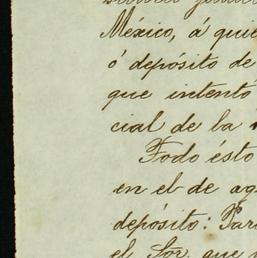 México, á quie
ó depósito de
que intentó
cial de la
Todo ésto
en el de ag
depósito: Par
el Sor. que